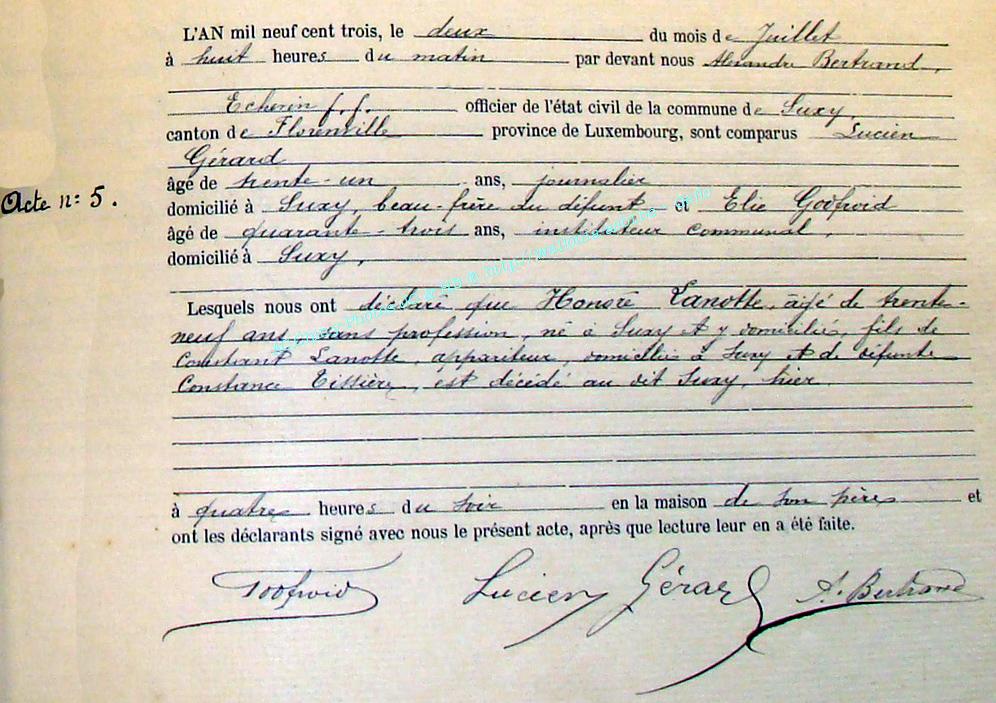 L'AN mil neuf cent trois, le deux du mois de Juillet
à huit heures du matin par devant nous Alexandre Bertrand,
Echevin f. f. officier de l'état civil de la commune de Suxy,
canton de Florenville province de Luxembourg, sont comparus Lucien
Gérard
âgé de trente-un ans, journalier
Acte n° 5.
domicilié à Suxy, beau-frère du défunt et Elie Godfroid
âgé de quarante-trois ans, instituteur communal,
domicilié à Suxy,
Lesquels nous ont déclaré que Honoré Lanotte, âgé de trente-
neuf ans, sans profession, né à Suxy et y domicilié, fils de
Constant Lanotte, appariteur, domicilié à Suxy et de défunte
Constance Tissière, est décédé au dit Suxy, hier
à quatres heures du soir en la maison de son père et
ont les déclarants signé avec nous le présent acte, après que lecture leur en a été faite.
Godfroid Lucien Gérard A. Bertrand